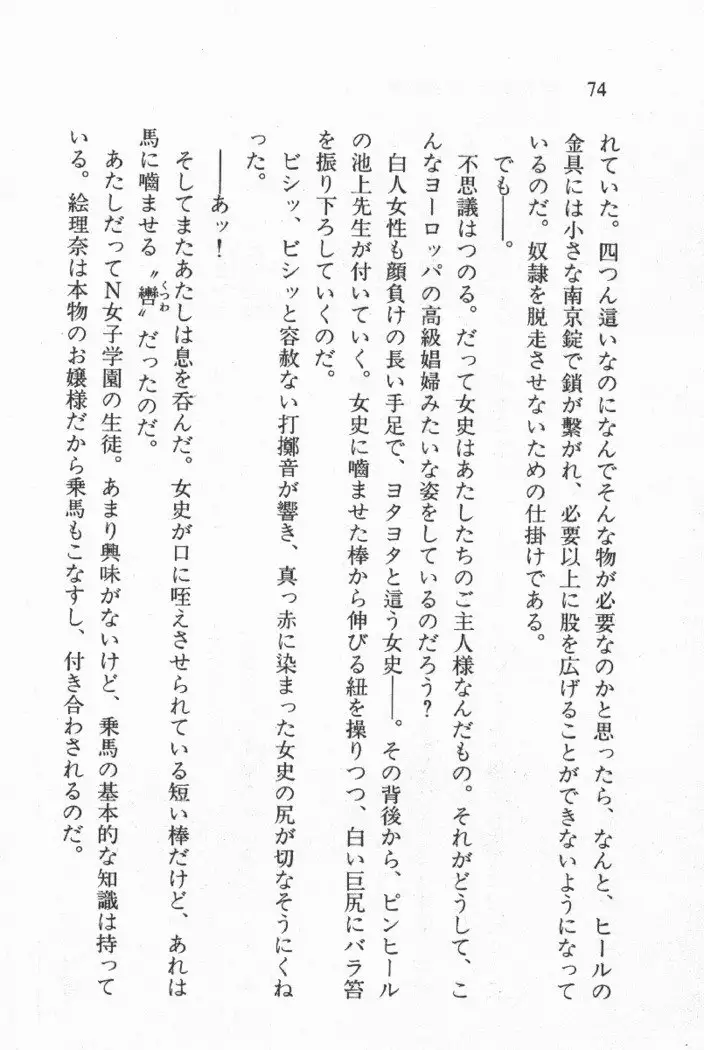 74
れていた。四つん這いなのになんでそんな物が必要なのかと思ったら、なんと、ヒールの
金具には小さな南京錠で鎖が繋がれ、必要以上に股を広げることができないようになって
いるのだ。奴隷を脱走させないための仕掛けである。
でも――。
不思議はつのる。だって女史はあたしたちのご主人様なんだもの。それがどうして、こ
んなヨーロッパの高級娼婦みたいな姿をしているのだろう?
白人女性も顔負けの長い手足で、ヨタヨタと這う女史――。その背後から、ピンヒール
の池上先生が付いていく。女史に嚙ませた棒から伸びる紐を操りつつ、白い巨尻にバラ笞
を振り下ろしていくのだ。
ビシッ、ビシッと容赦ない打擲音が響き、真っ赤に染まった女史の尻が切なそうにくね
った。
――あッ!
そしてまたあたしは息を呑んだ。女史が口に咥えさせられている短い棒だけど、あれは
馬に嚙ませる〝轡くつわ〟だったのだ。
あたしだってN女子学園の生徒。あまり興味がないけど、乗馬の基本的な知識は持って
いる。絵理奈は本物のお嬢様だから乗馬もこなすし、付き合わされるのだ。